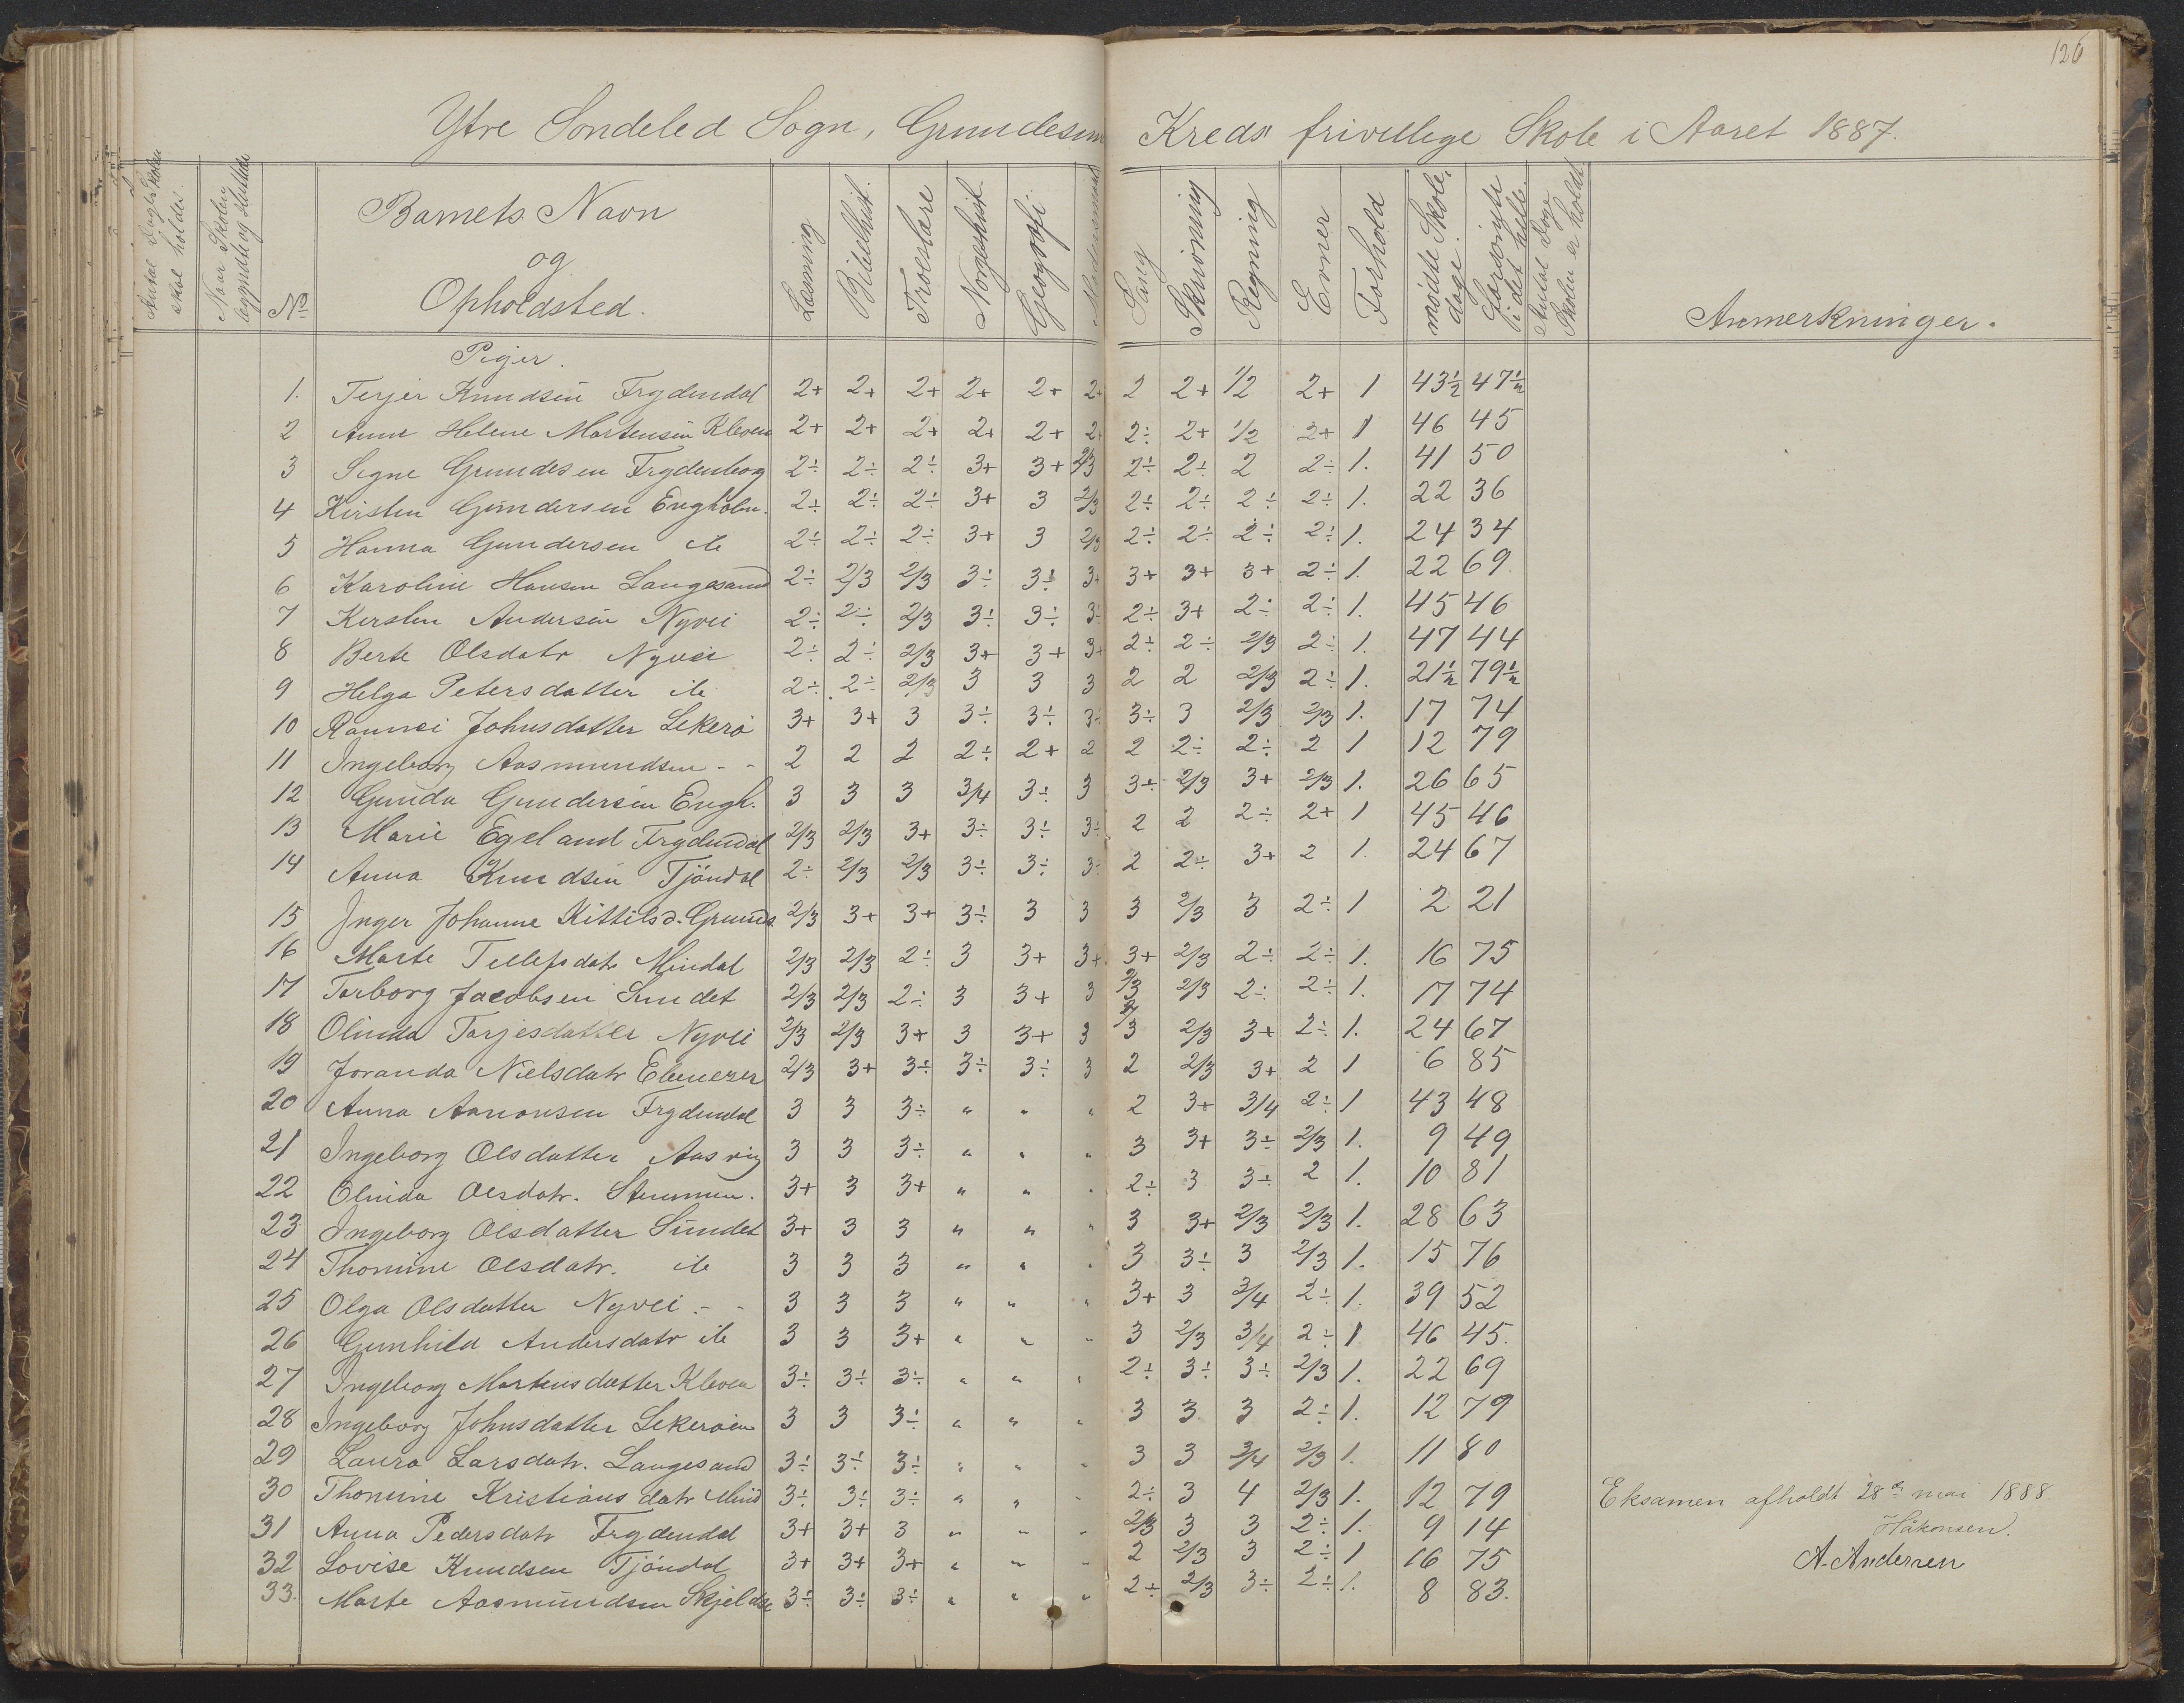 126
Ytre Sondeled Sogn, Grundesun Kreds frivillige Skole i Aaret 1887.
Antal Dage Skolen skal holdes.
Naar Skolen begyndte og sluttede
No
Barnets Navn og Opholdsted.
Læsning
Bibelhist.
Troeslære
Norgeshist.
Geografi
Modersmaal
Sang
Skrivning
Regning
Evner
Forhold
mødte Skoledage.
Forsømte i det hele.
Antal Dage Skolen er holdt
Anmerkninger.
Piger.
1. Terjer Knudsen Frydendal 2+ 2+ 2+ 2+ 2+ 2+ 2 2+ 1/2 2+ 1 43½ 47½
2 Anne Helene Martensen Kleven 2+ 2+ 2+ 2+ 2+ 2+ 2÷ 2+ 1/2 2+ 1 46 45
3 Signe Grundesen Frydenborg 2÷ 2÷ 2÷ 3+ 3+ 2/3 2÷ 2÷ 2 2÷ 1. 41 50
4 Kirsten Gundersen Engholm. 2÷ 2÷ 2÷ 3+ 3 2/3 2÷ 2÷ 2÷ 2÷ 1. 22 36
5 Hanna Gundersen ib 2÷ 2÷ 2÷ 3+ 3 2/3 2÷ 2÷ 2÷ 2÷ 1. 24 34
6 Karoline Hansen Langesand 2÷ 2/3 2/3 3÷ 3÷ 3+ 3+ 3+ 3+ 2÷ 1. 22 69.
7 Kersten Andersen Nyvei 2÷ 2÷ 2/3 3÷ 3÷ 3÷ 2÷ 3+ 2÷ 2÷ 1. 45 46
8 Berte Olsdatr Nyvei 2÷ 2÷ 2/3 3+ 3+ 3+ 2÷ 2÷ 2/3 2÷ 1. 47 44
9 Helga Petersdatter ib 2÷ 2÷ 2/3 3 3 3 2 2 2/3 2÷ 1. 21½ 79½
10 Rannei Johnsdatter Lekerø 3+ 3+ 3 3÷ 3÷ 3÷ 3÷ 3 2/3 2/3 1. 17 74
11 Ingeborg Aasmundsen - - 2 2 2 2÷ 2+ 2 2 2÷ 2÷ 2 1 12 79
12 Gunda Gundersen Engh. 3 3 3 3/4 3÷ 3 3÷ 2/3 3+ 2/3 1. 26 65
13 Marie Egeland Frydendal 2/3 2/3 3+ 3÷ 3÷ 3÷ 2 2 2÷ 2+ 1 45 46
14 Anna Knudsen Tjöndal 2÷ 2/3 2/3 3÷ 3÷ 3÷ 2 2÷ 3+ 2 1. 24 67
15 Inger Johanne Kittilsd. Grunds. 2/3 3+ 3+ 3÷ 3 3 3 2/3 3 2÷ 1 2 21
16 Marte Tellefsdatr Mindal 2/3 2/3 2÷ 3 3+ 3+ 3+ 2/3 2÷ 2÷ 1. 16 75
17 Torborg Jacobsen Sundet 2/3 2/3 2÷ 3 3+ 3 2/3 2/3 2÷ 2÷ 1. 17 74
18 Olinda Torjesdatter Nyvei 2/3 2/3 3+ 3 3+ 3 2/3 2/3 3+ 2÷ 1. 24 67
19 Joranda Nielsdatr Ebenezer 2/3 3+ 3÷ 3÷ 3÷ 3 2 2/3 3+ 2 1 6 85
20 Anna Aanonsen Frydendal 3 3 3÷ " " " 2 3+ 3/4 2÷ 1 43 48
21 Ingeborg Olsdatter Aasvig 3 3 3÷ " " " 3 3+ 3÷ 2/3 1. 9 49
22 Olinda Olsdatr. Stummen. 3+ 3 3+ " " " 2÷ 3 3÷ 2 1. 10 81
23 Ingeborg Olsdatter Sundet 3+ 3 3 " " " 3 3+ 2/3 2/3 1. 28 63
24 Thomine Olsdatr. ib 3 3 3 " " " 3 3÷ 3 2/3 1. 15 76
25 Olga Olsdatter Nyvei - - 3 3 3 " " " 3+ 3 3/4 2÷ 1. 39 52
26 Gunhild Andersdatr ib 3 3 3+ " " " 3 2/3 3/4 2÷ 1 46 45.
27 Ingeborg Martensdatter Kleven 3÷ 3÷ 3÷ " " " 2÷ 3÷ 3÷ 2/3 1. 22 69
28 Ingeborg Johnsdatter Lekerøen 3 3 3÷ " " " 3 3 3 2÷ 1. 12 79
29 Laura Larsdatr. Langesand 3÷ 3÷ 3÷ " " " 3 3 3/4 2/3 1. 11 80
30 Thomine Kristiansdatr Mind 3÷ 3÷ 3÷ " " " 2÷ 3 4 2/3 1. 12 79 Eksamen afholdt 28de mai 1888.
31 Anna Pedersdatr Frydendal 3+ 3+ 3 " " " 2/3 3 3 2÷ 1. 9 14 Håkonsen.
32 Lovise Knudsen Tjöndal 3+ 3+ 3+ " " " 2 2/3 3 2÷ 1 16 75 A. Andersen
33. Marte Aasmundsen Skjeldse 3÷ 3÷ 3÷ " " " 2÷ 2/3 3÷ 2÷ 1. 8 83.